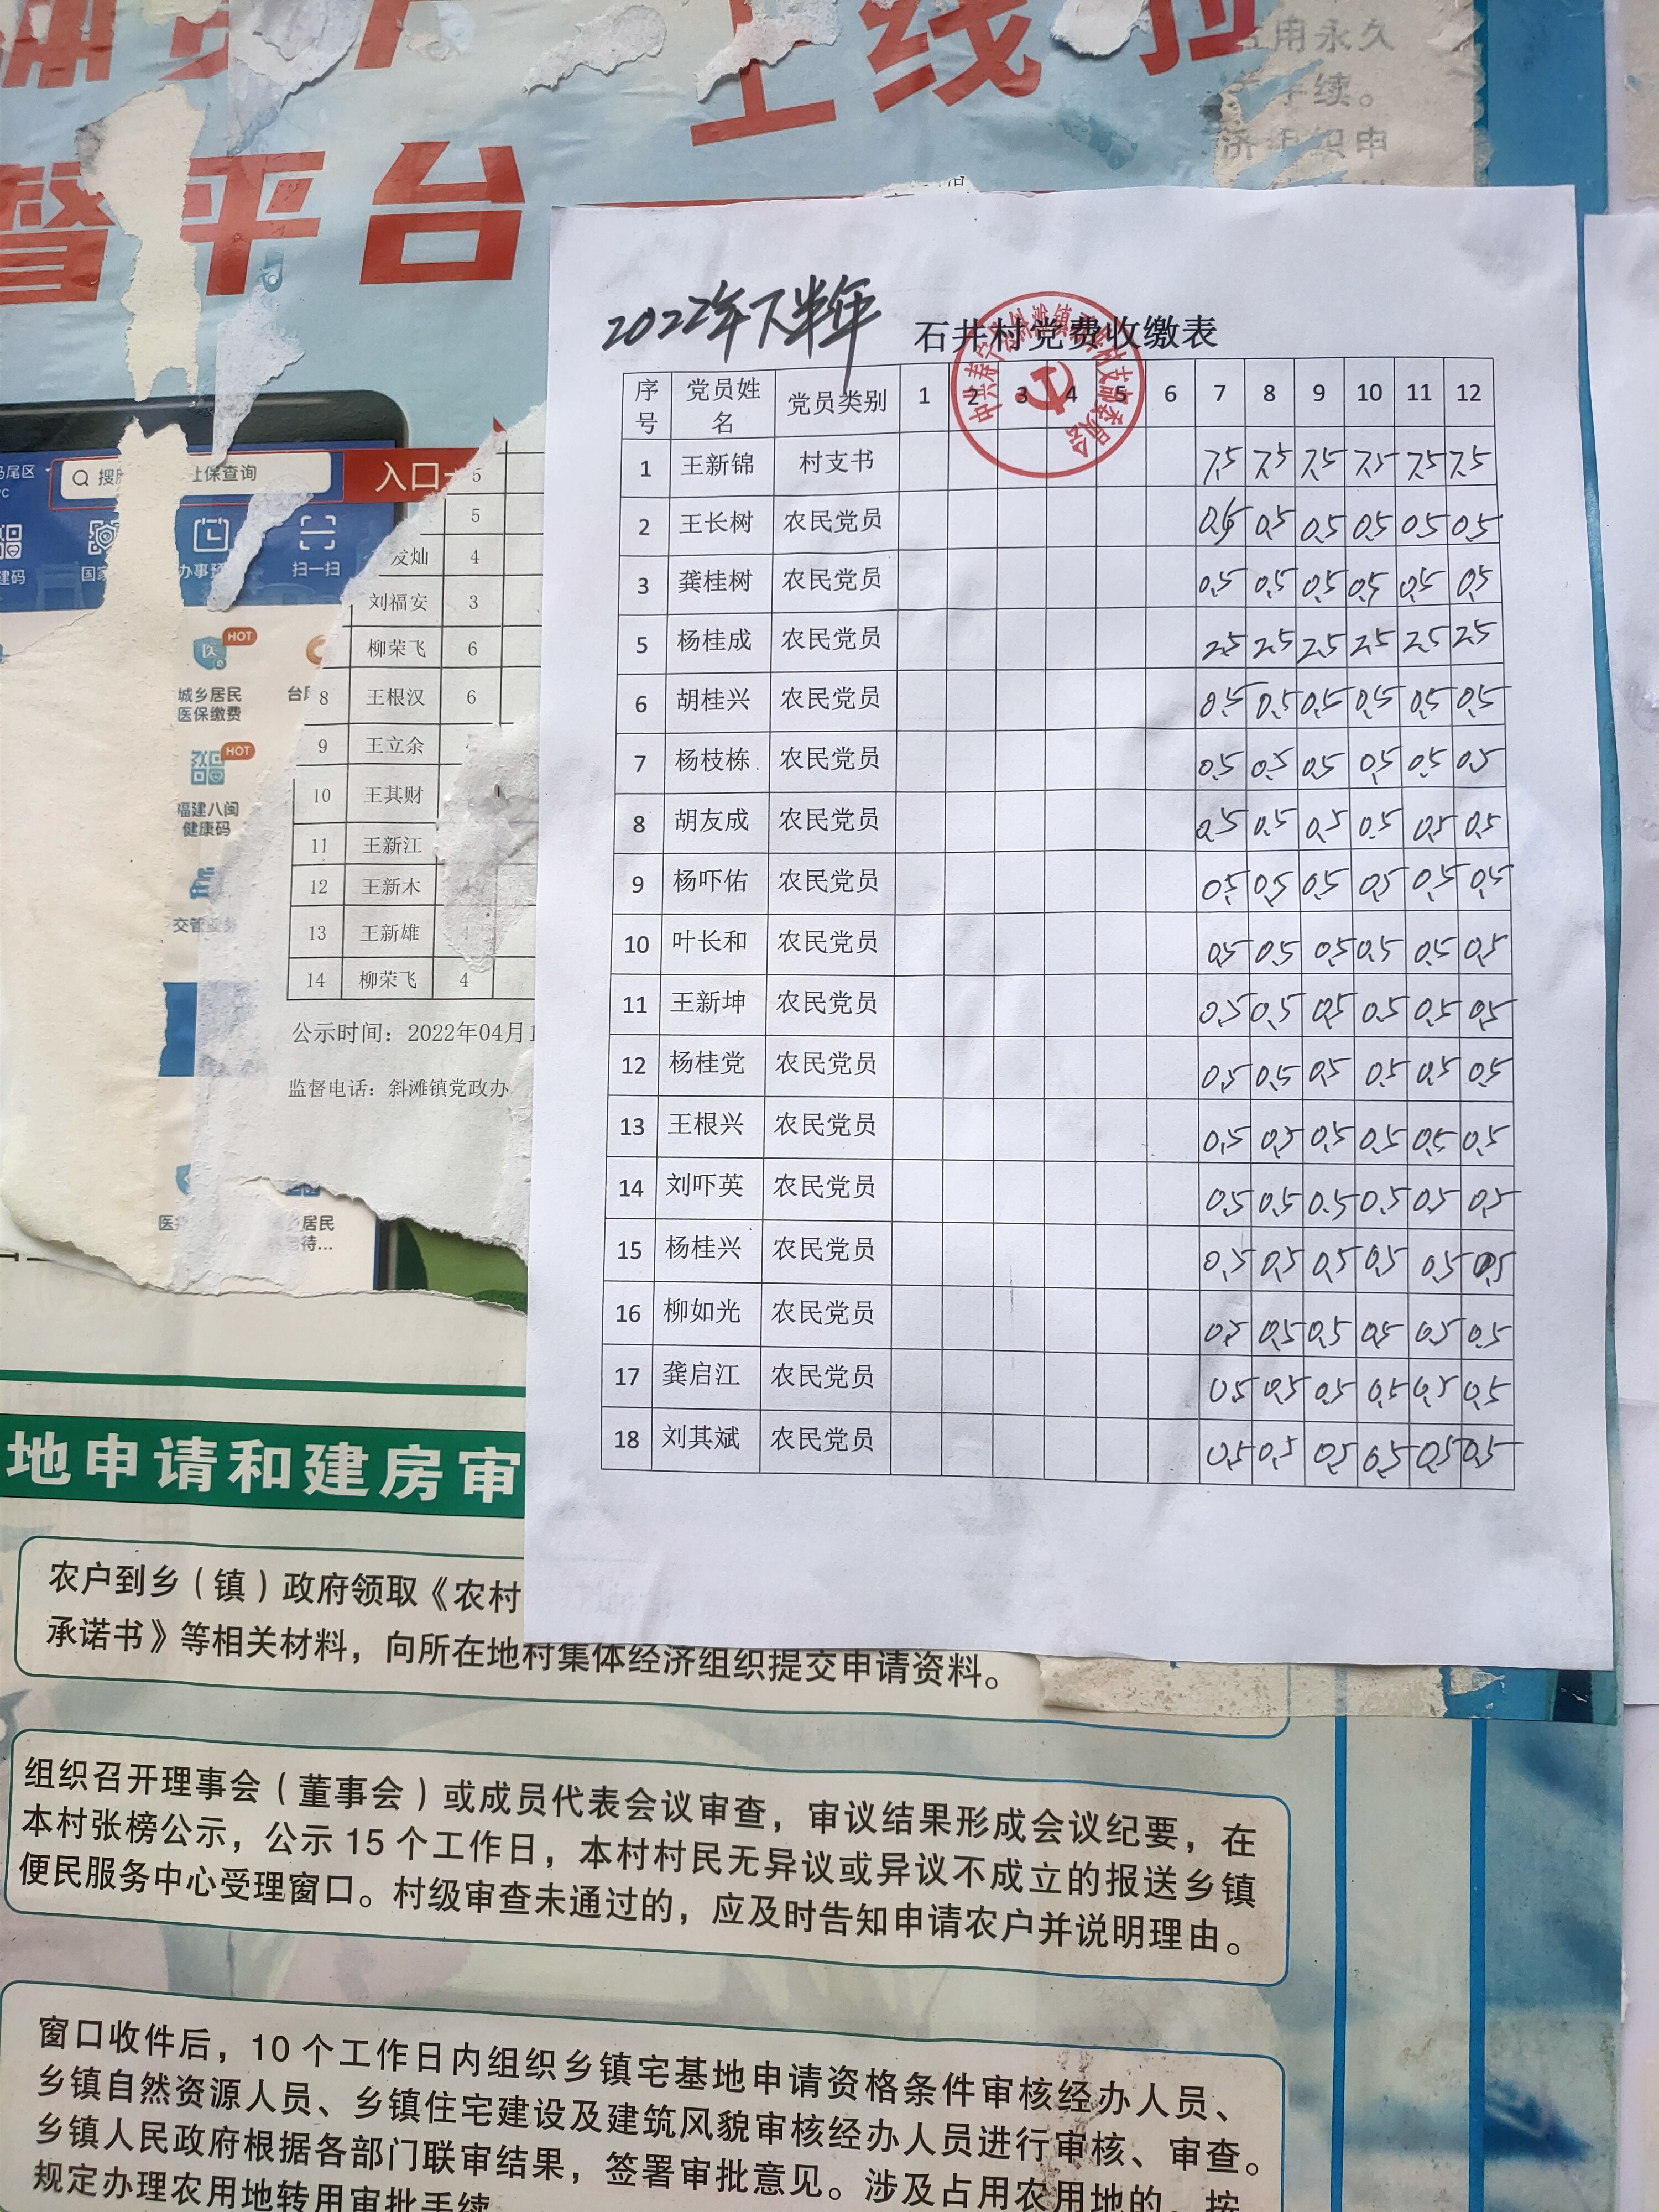 上线
用永久
手续。
济组织申
督平台
2022年下半年 石井村党费收缴表
中共寿宁县斜滩镇石井村支部委员会
序号 党员姓名 党员类别 1 2 3 4 5 6 7 8 9 10 11 12
1 王新锦 村支书 7.5 7.5 7.5 7.5 7.5 7.5
2 王长树 农民党员 0.5 0.5 0.5 0.5 0.5 0.5
3 龚桂树 农民党员 0.5 0.5 0.5 0.5 0.5 0.5
5 杨桂成 农民党员 2.5 2.5 2.5 2.5 2.5 2.5
6 胡桂兴 农民党员 0.5 0.5 0.5 0.5 0.5 0.5
7 杨枝栋 农民党员 0.5 0.5 0.5 0.5 0.5 0.5
8 胡友成 农民党员 0.5 0.5 0.5 0.5 0.5 0.5
9 杨吓佑 农民党员 0.5 0.5 0.5 0.5 0.5 0.5
10 叶长和 农民党员 0.5 0.5 0.5 0.5 0.5 0.5
11 王新坤 农民党员 0.5 0.5 0.5 0.5 0.5 0.5
12 杨桂党 农民党员 0.5 0.5 0.5 0.5 0.5 0.5
13 王根兴 农民党员 0.5 0.5 0.5 0.5 0.5 0.5
14 刘吓英 农民党员 0.5 0.5 0.5 0.5 0.5 0.5
15 杨桂兴 农民党员 0.5 0.5 0.5 0.5 0.5 0.5
16 柳如光 农民党员 0.5 0.5 0.5 0.5 0.5 0.5
17 龚启江 农民党员 0.5 0.5 0.5 0.5 0.5 0.5
18 刘其斌 农民党员 0.5 0.5 0.5 0.5 0.5 0.5
马尾区
搜 社保查询
入口
建码
国家
办事预
扫一扫
HOT
城乡居民
医保缴费
台
HOT
福建八闽
健康码
交管
居民
待...
5
5
发灿 4
刘福安 3
柳荣飞 6
8 王根汉 6
9 王立余
10 王其财
11 王新江
12 王新木
13 王新雄
14 柳荣飞 4
公示时间：2022年04月1
监督电话：斜滩镇党政办
地申请和建房审
农户到乡（镇）政府领取《农村
承诺书》等相关材料，向所在地村集体经济组织提交申请资料。
组织召开理事会（董事会）或成员代表会议审查，审议结果形成会议纪要，在
本村张榜公示，公示 15 个工作日，本村村民无异议或异议不成立的报送乡镇
便民服务中心受理窗口。村级审查未通过的，应及时告知申请农户并说明理由。
窗口收件后，10 个工作日内组织乡镇宅基地申请资格条件审核经办人员、
乡镇自然资源人员、乡镇住宅建设及建筑风貌审核经办人员进行审核、审查。
乡镇人民政府根据各部门联审结果，签署审批意见。涉及占用农用地的，按
规定办理农用地转用审批手续